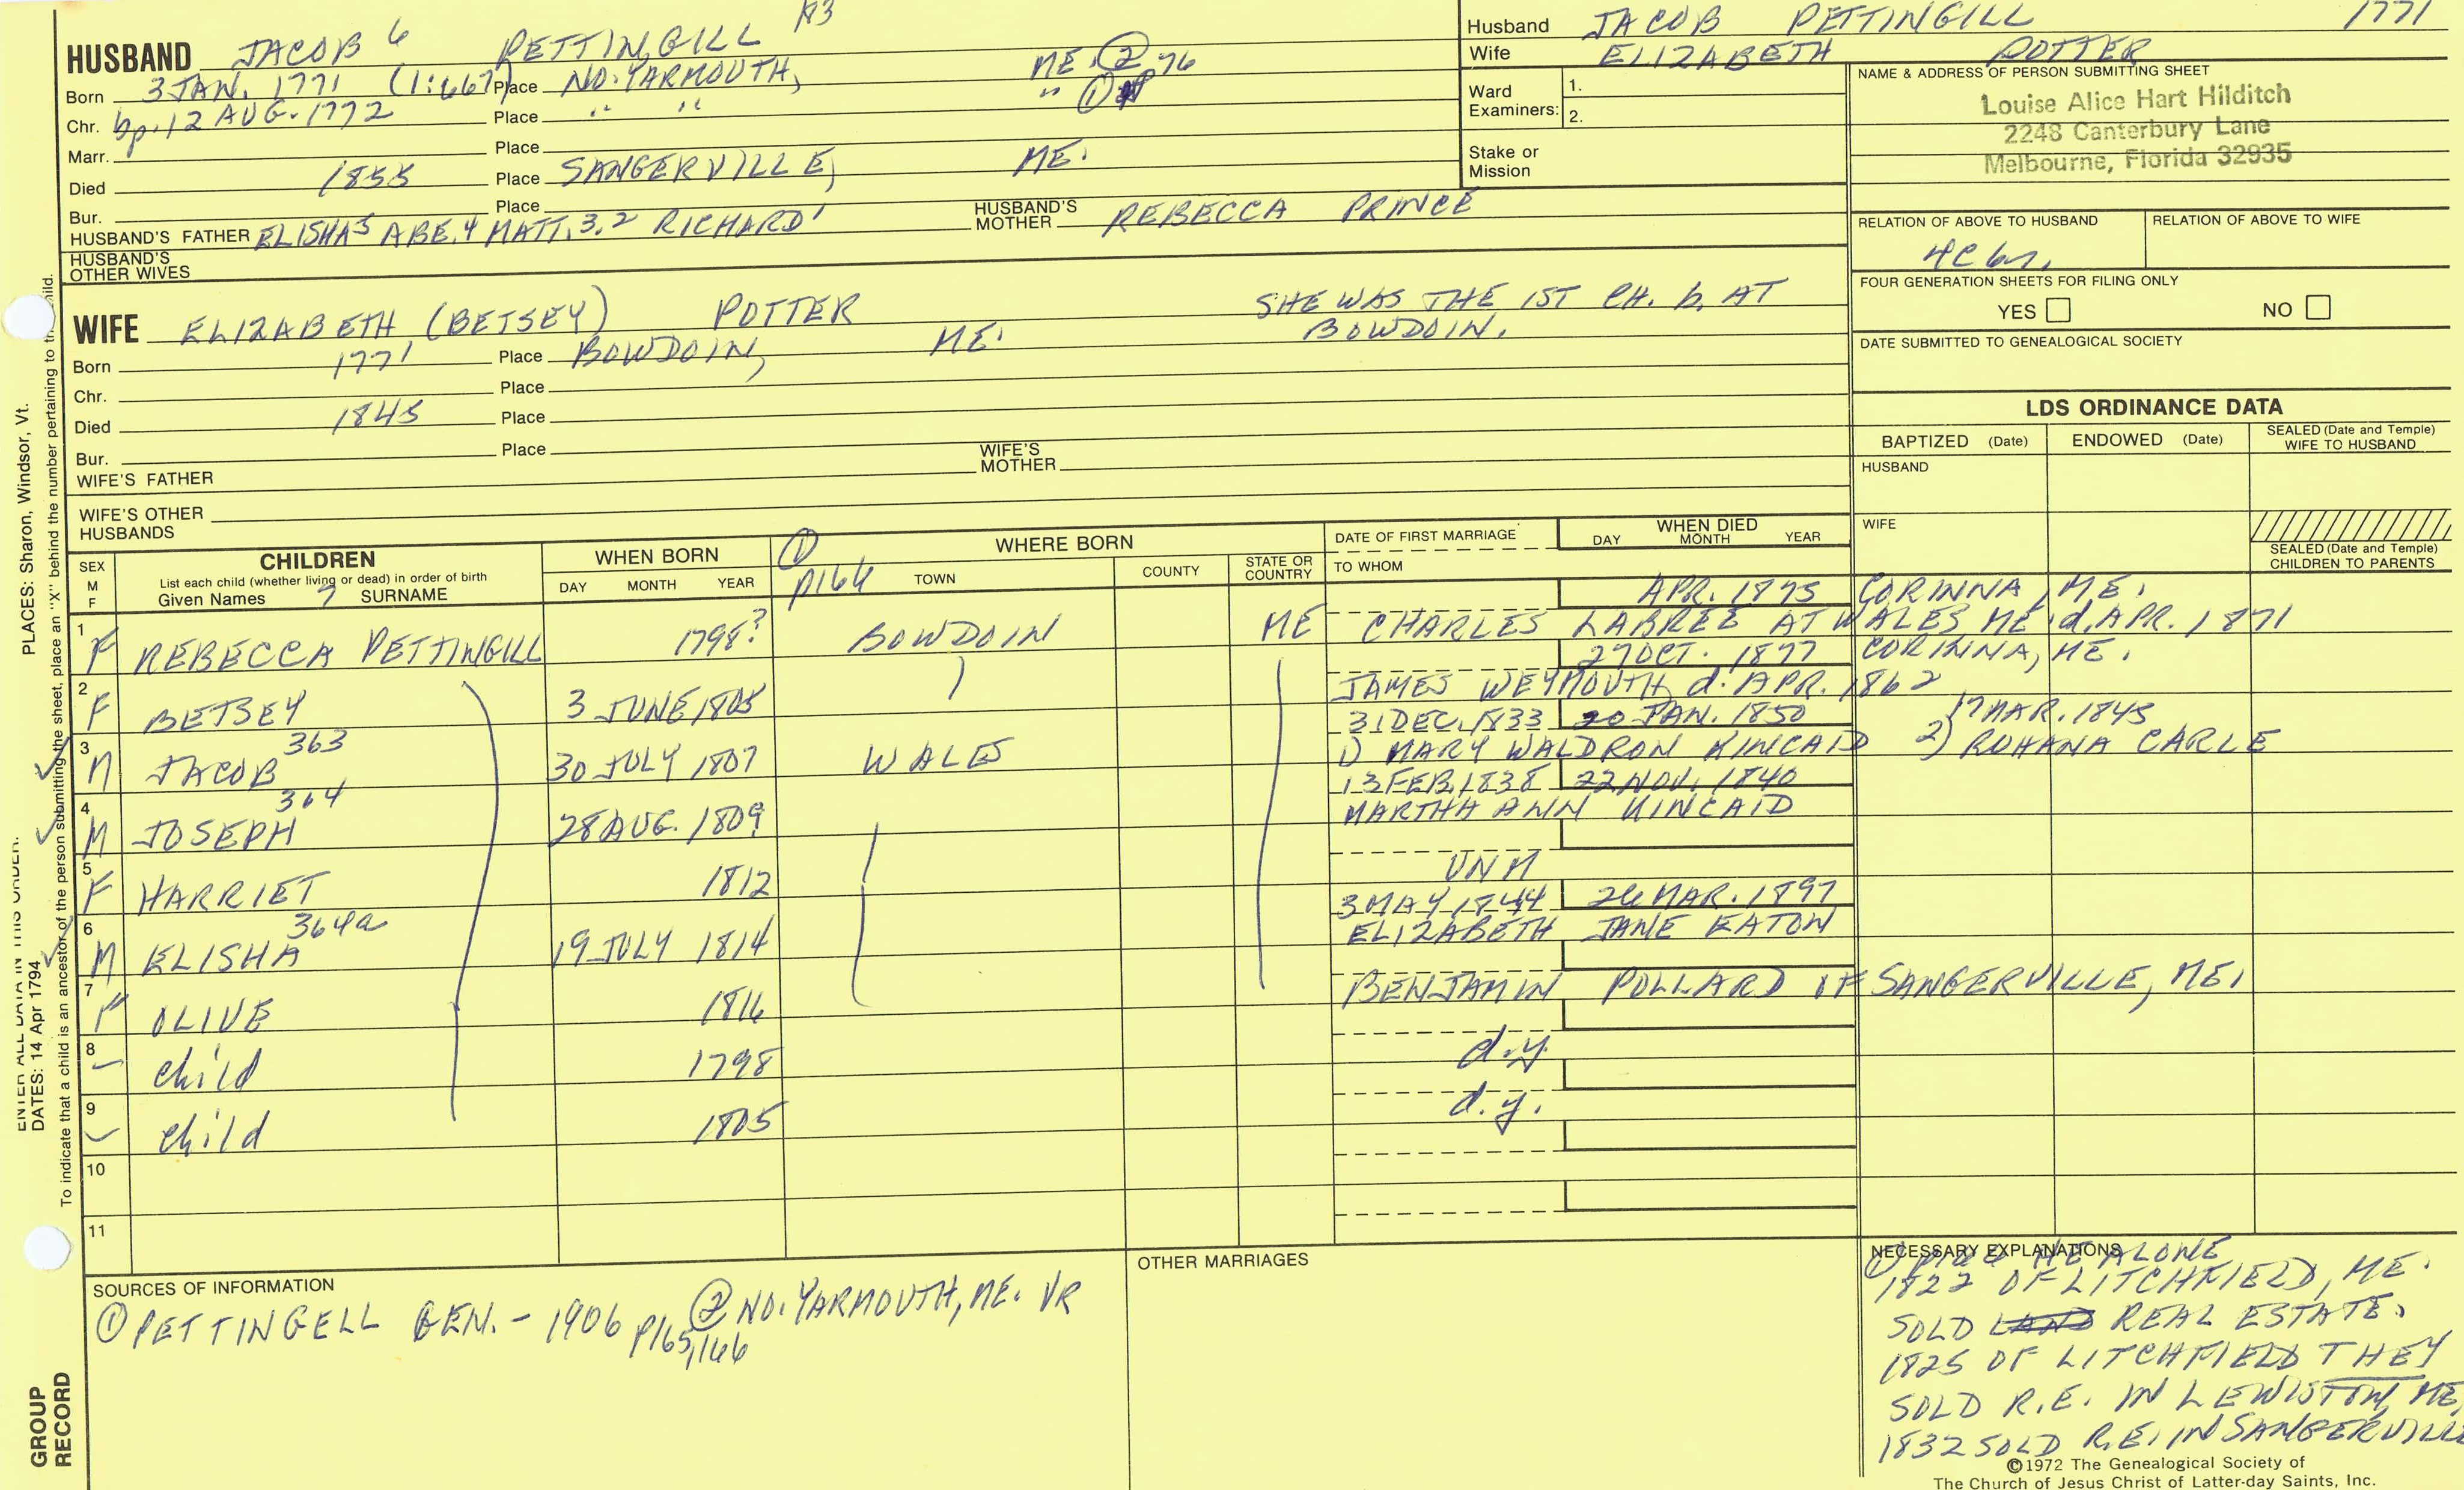 HUSBAND JACOB 6 PETTINGILL 183
Born 3 JAN. 1771 (1:667) Place NO. YARMOUTH, ME. ② 76
Chr. bp. 12 AUG. 1772 Place " " " ①
Marr. Place
Died 1855 Place SANGERVILLE, ME.
Bur. Place
HUSBAND'S FATHER ELISHA5 ABE.4 MATT.3,2 RICHARD1 HUSBAND'S MOTHER REBECCA PRINCE
HUSBAND'S OTHER WIVES
WIFE ELIZABETH (BETSEY) POTTER SHE WAS THE 1ST CH. b. AT
BOWDOIN.
Born 1771 Place BOWDOIN, ME.
Chr. Place
Died 1845 Place
Bur. Place
WIFE'S FATHER WIFE'S MOTHER
WIFE'S OTHER HUSBANDS
Husband JACOB PETTINGILL 1771
Wife ELIZABETH POTTER
Ward Examiners: 1.
2.
Stake or Mission
NAME & ADDRESS OF PERSON SUBMITTING SHEET
Louise Alice Hart Hilditch
2248 Canterbury Lane
Melbourne, Florida 32935
RELATION OF ABOVE TO HUSBAND RELATION OF ABOVE TO WIFE
4C 6r.
FOUR GENERATION SHEETS FOR FILING ONLY
YES NO
DATE SUBMITTED TO GENEALOGICAL SOCIETY
LDS ORDINANCE DATA
BAPTIZED (Date) ENDOWED (Date) SEALED (Date and Temple) WIFE TO HUSBAND
HUSBAND
WIFE
SEALED (Date and Temple) CHILDREN TO PARENTS
SEX M F
CHILDREN
List each child (whether living or dead) in order of birth
Given Names 7 SURNAME
WHEN BORN
DAY MONTH YEAR
① p166
WHERE BORN
TOWN COUNTY STATE OR COUNTRY
DATE OF FIRST MARRIAGE
TO WHOM
WHEN DIED
DAY MONTH YEAR
APR. 1875 CORINNA, ME.
1 F REBECCA PETTINGILL 1798? BOWDOIN ME CHARLES LABREE AT WALES ME. d. APR. 1871
27 OCT. 1877 CORINNA, ME.
2 F BETSEY 3 JUNE 1805 JAMES WEYMOUTH d. APR. 1862
31 DEC. 1833 20 JAN. 1850 17 MAR. 1845
3 M JACOB 363 30 JULY 1807 WALES 1) MARY WALDRON KINCAID 2) RUHANA CARLE
13 FEB. 1838 22 NOV. 1840
4 M JOSEPH 364 28 AUG. 1809 MARTHA ANN KINCAID
5 F HARRIET 1812 UNM
3 MAY 1844 26 MAR. 1897
6 M ELISHA 364a 19 JULY 1814 ELIZABETH JANE EATON
7 F OLIVE 1816 BENJAMIN POLLARD OF SANGERVILLE, ME.
8 – child 1798 d.y.
9 – child 1805 d.y.
10
11
SOURCES OF INFORMATION
① PETTINGELL GEN. - 1906 p165,166 ② NO. YARMOUTH, ME. VR
OTHER MARRIAGES
NECESSARY EXPLANATIONS
① p166 HE ALONE
1822 OF LITCHFIELD, ME.
SOLD LAND REAL ESTATE.
1825 OF LITCHFIELD THEY
SOLD R.E. IN LEWISTON, ME,
1832 SOLD R.E. IN SANGERVILLE
©1972 The Genealogical Society of
The Church of Jesus Christ of Latter-day Saints, Inc.
PLACES: Sharon, Windsor, Vt.
ENTER ALL DATA IN THIS ORDER:
DATES: 14 Apr 1794
To indicate that a child is an ancestor of the person submitting the sheet, place an "X" behind the number pertaining to th child.
GROUP RECORD